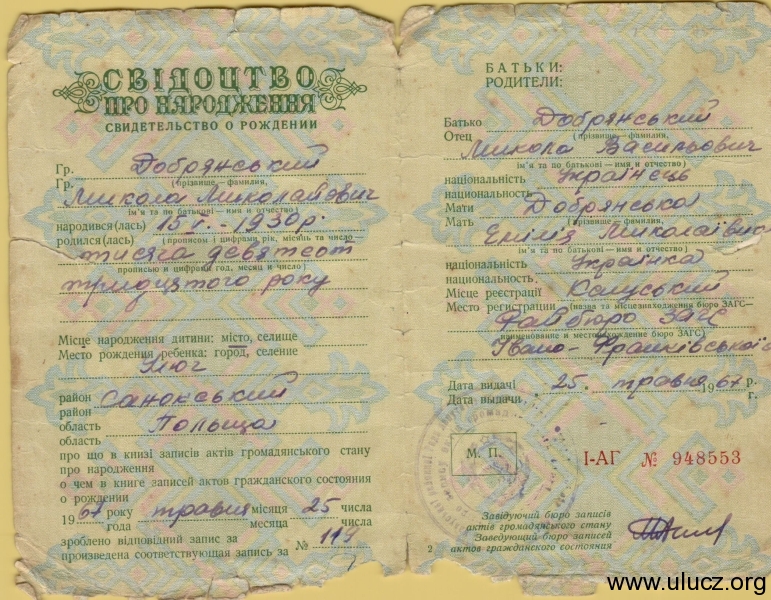 СВІДОЦТВО
ПРО НАРОДЖЕННЯ
СВИДЕТЕЛЬСТВО О РОЖДЕНИИ
Гр. Добрянський
Гр. (прізвище – фамилия,
Микола Миколайович
ім'я та по батькові – имя и отчество)
народився(лась) 15 – І. – 1930 р.
родился(лась) (прописом і цифрами рік, місяць та число
тисяча дев'ятсот
прописью и цифрами год, месяц и число)
тридцятого року
Місце народження дитини: місто, селище
Место рождения ребенка: город, селение
Улюч
район Саноксьский
район
область Польща
область
про що в книзі записів актів громадянського стану
про народження
о чем в книге записей актов гражданского состояния
о рождении
1967 року травня місяця 25 числа
года месяца числа
зроблено відповідний запис за № 119
произведена соответствующая запись за
БАТЬКИ:
РОДИТЕЛИ:
Батько Добрянський
Отец (прізвище – фамилия,
Микола Васильович
ім'я та по батькові – имя и отчество)
національність Українець
национальность
Мати Добрянська
Мать (прізвище – фамилия,
Емілія Миколаївна
ім'я та по батькові – имя и отчество)
національність Українка
национальность
Місце реєстрації Калуський
Место регистрации (назва та місцезнаходження бюро ЗАГС –
Райбюро ЗАГС
наименование и местонахождение бюро ЗАГС)
Івано-Франківської
Дата видачі „25„ травня 1967 р.
Дата выдачи г.
М. П.
І-АГ № 948553
Завідуючий бюро записів
актів громадянського стану
Заведующий бюро записей
актов гражданского состояния
2
www.ulucz.org